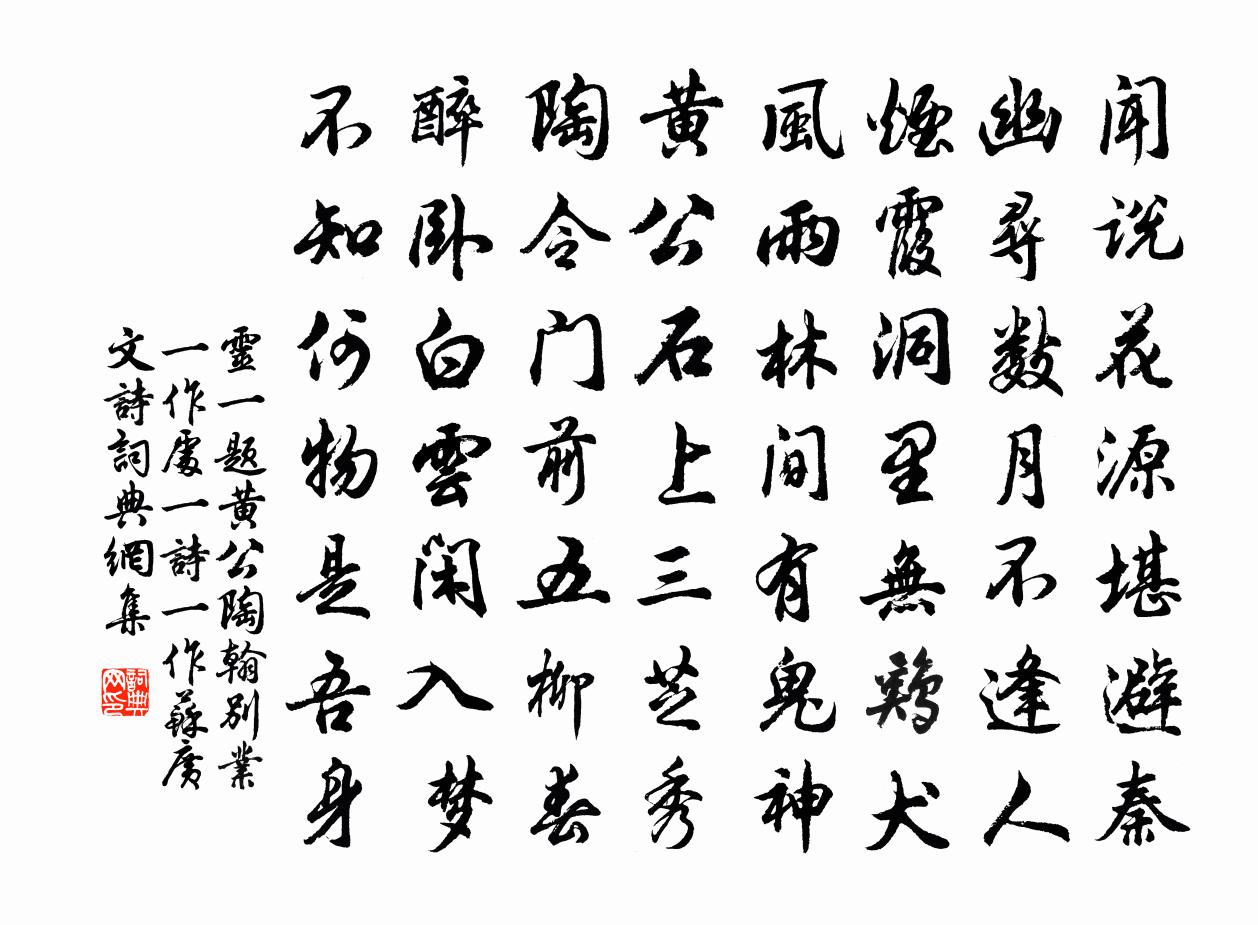 聞说花源堪避秦
幽尋數月不逢人
煙霞洞里無鶏犬
風雨林間有鬼神
黄公石上三芝秀
陶令门前五柳春
醉卧白雲闲入梦
不知何物是吾身
靈一题黄公陶翰别業
一作處一詩一作蘇廣
文詩詞典網集
詞典网印